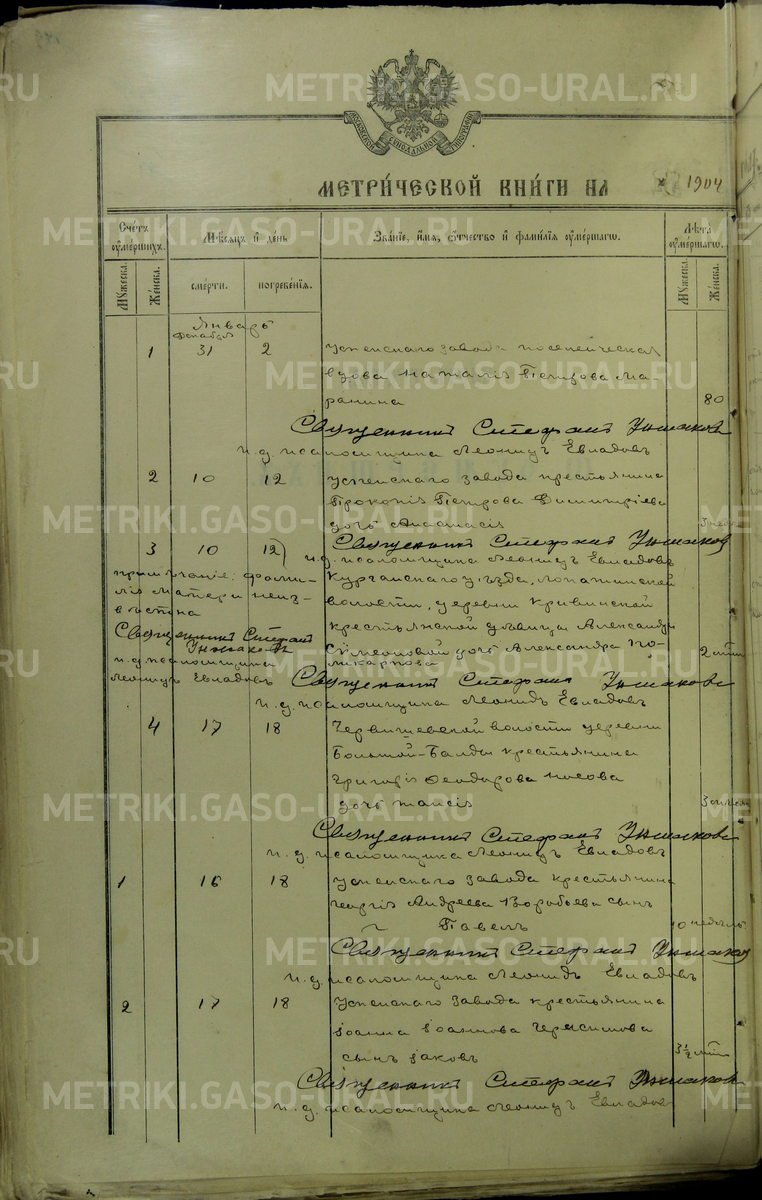 МОСКОВСКОЙ СѴНОДАЛЬНОЙ ТИПОГРАФІИ
МЕТРИ́ЧЕСКОЙ КНИ́ГИ НА 1904
Сче́тъ ᲂу҆ме́ршихъ.
Мѣ́сѧцъ и҆ де́нь
Зва́нїе, и҆́мѧ, ѻ҆́тчество и҆ фами́лїѧ ᲂу҆ме́ршагѡ.
Лѣ́та ᲂу҆ме́ршагѡ.
Мꙋ́жеска.
Же́нска.
сме́рти.
погребе́нїѧ.
Мꙋ́жеска.
Же́нска.
Январь
Декабря
1 31 2 Успенскаго завода поселическая
вдова Наталія Петрова Ма-
ранина 80
Священникъ Стефанъ Унжаковъ
и. д. псаломщика Леонидъ Евладовъ
2 10 12 Успенскаго завода крестьянина
Прокопія Петрова Димитріева
дочь Анастасія
Священникъ Стефанъ Унжаковъ
и. д. псаломщика Леонидъ Евладовъ
3 10 12 Курганскаго уѣзда, Лопатинской
волости, деревни Кривинской
крестьянской дѣвицы Александры
Симеоновой дочь Александра По-
ликарпова 2 лѣтъ
примѣчаніе: фами-
лія матери неиз-
вѣстна
Священникъ Стефанъ
Унжаковъ
и. д. псаломщика
Леонидъ Евладовъ
Священникъ Стефанъ Унжаковъ
и. д. псаломщика Леонидъ Евладовъ
4 17 18 Червишевской волости деревни
Большой-Балды крестьянина
Григорія Ѳеодорова Носова
дочь Таисія
Священникъ Стефанъ Унжаковъ
и. д. псаломщика Леонидъ Евладовъ
1 16 18 Успенскаго завода крестьянина
Георгія Андреева Воробьева сынъ
Павелъ 10 недѣль
Священникъ Стефанъ Унжаковъ
и. д. псаломщика Леонидъ Евладовъ
2 17 18 Успенскаго завода крестьянина
Іоанна Іоаннова Герасимова
сынъ Іаковъ 3 ½ лѣтъ
Священникъ Стефанъ Унжаковъ
и. д. псаломщика Леонидъ Евладовъ
METRIKI.GASO-URAL.RU